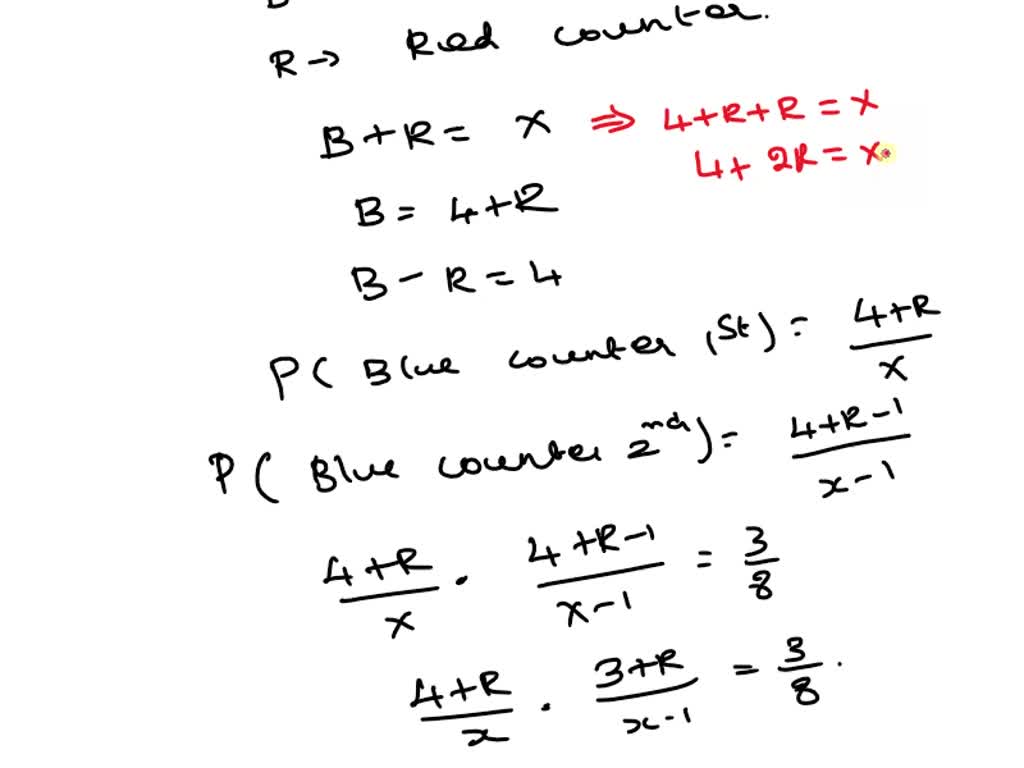 R → Red counter.
B + R = x ⇒ 4 + R + R = x
4 + 2R = x
B = 4 + R
B - R = 4
P( Blue counter 1st) = 4+R/x
P( Blue counter 2nd) = 4+R-1/x-1
4+R/x . 4+R-1/x-1 = 3/8
4+R/x . 3+R/x-1 = 3/8.